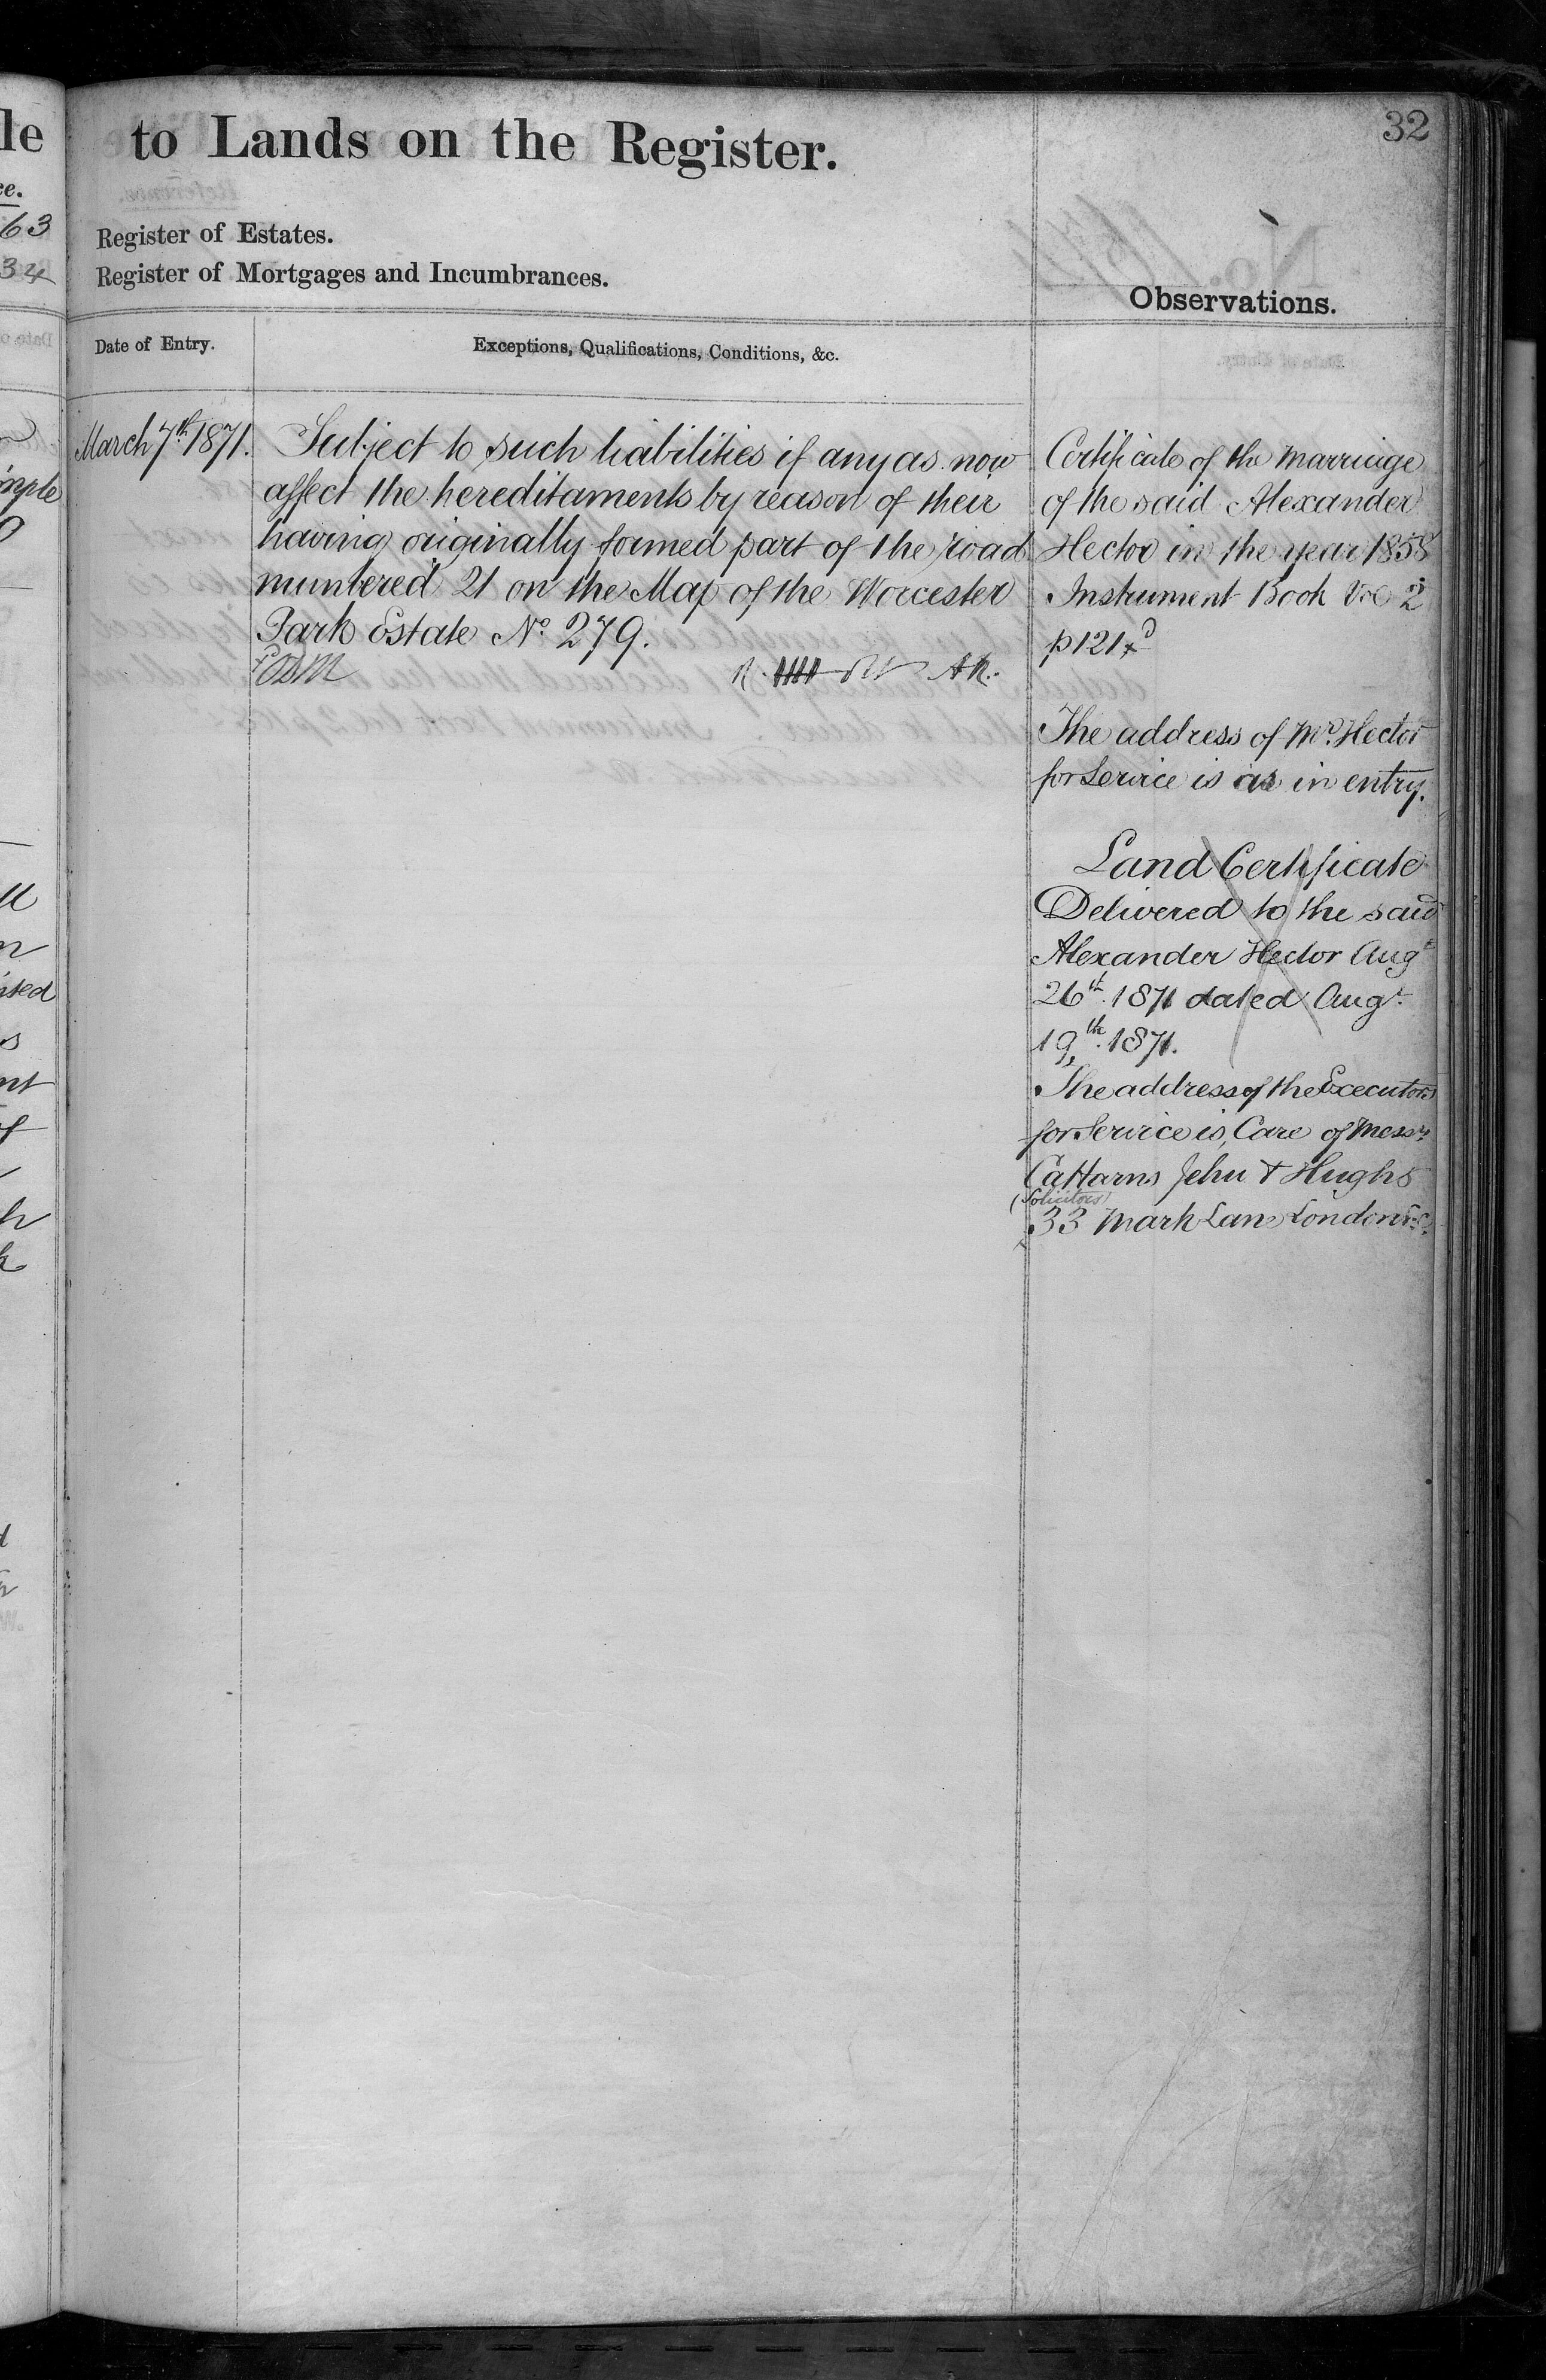 32
to Lands on the Register.
Register of Estates.
Register of Mortgages and Incumbrances.
Observations.
Date of Entry.
Exceptions, Qualifications, Conditions, &c.
March 7th 1871.
Subject to such liabilities if any as now
affect the hereditaments by reason of their
having originally formed part of the road
numbered 21 on the Map of the Worcester
Park Estate No. 279.
Certificate of the marriage
of the said Alexander
Hector in the year 1858
Instrument Book Vol 2
p 121
The address of Mr. Hector
for Service is as in entry.
Land Certificate
Delivered to the said
Alexander Hector Augt
26th. 1871 dated Augt.
19th. 1871.
The address of the Executors
for Service is, Care of Messrs
Cattarns Jehu & Hughs
(Solicitors)
33 Mark Lane London
le
ce.
63
34